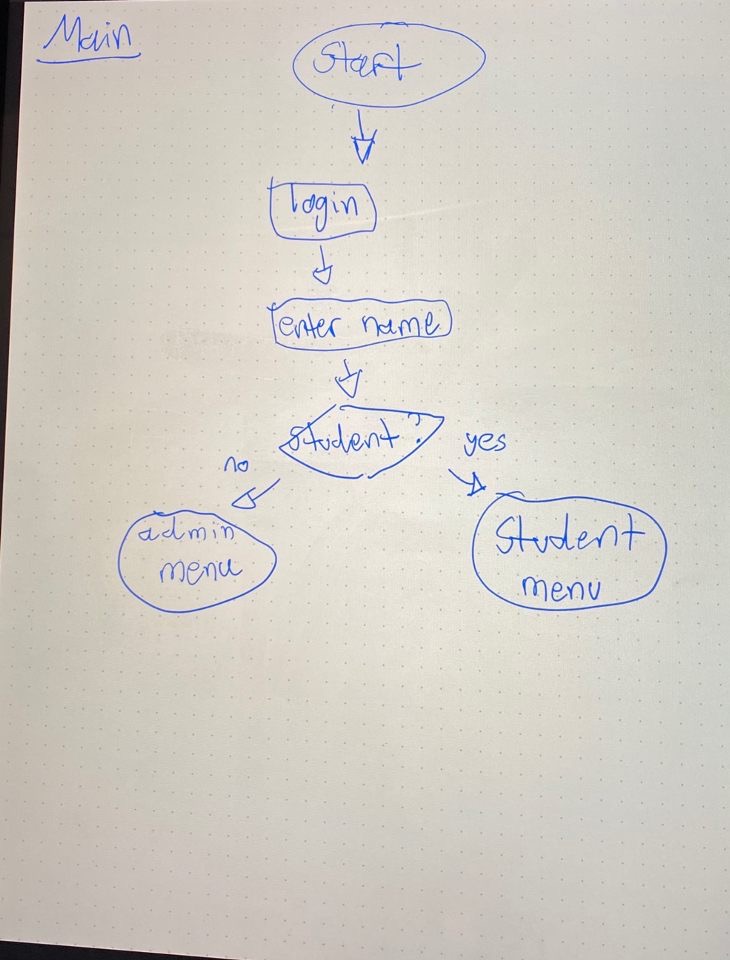 Main
Start
login
enter name
student?
no
yes
admin
menu
Student
menu